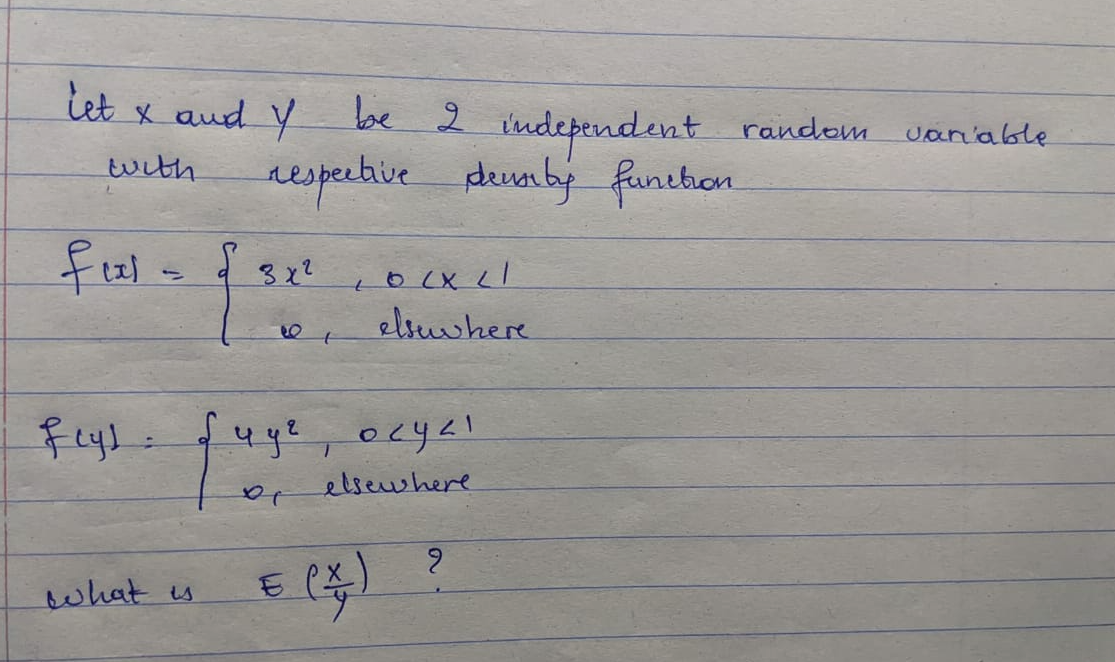 Let x and y be 2 independent random variable
with respective density function
f(x) = { 3x² , 0 < x < 1
0, elsewhere
f(y) = { 4y² , 0 < y < 1
0, elsewhere
What is E (x/y) ?